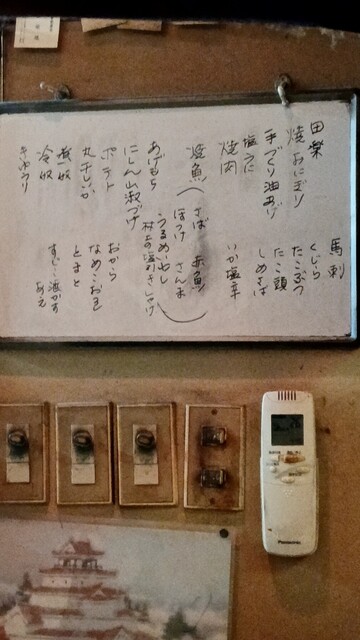 田楽
焼おにぎり
手づくり油あげ
塩うに
焼肉
焼魚(さば 赤魚
ほっけ さんま
うるめいわし
村上の塩引きしゃけ)
あげもち
にしん山椒づけ
ポテト
丸干しいか
煮奴
冷奴
きゅうり
馬刺
くじら
たこぶつ
たこ頭
しめさば
いか塩辛
おから
なめこおろし
とまと
すじこ酒かすあえ
Panasonic